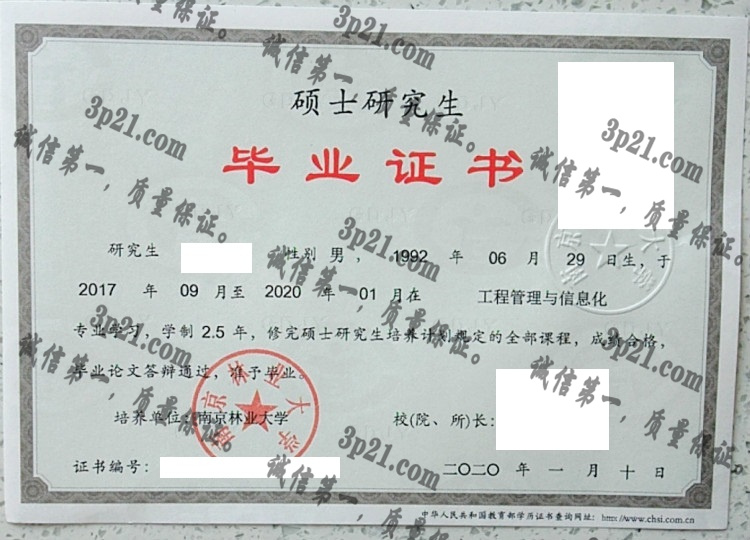 硕士研究生
毕业证书
研究生 性别 男, 1992 年 06 月 29 日生,于
2017 年 09 月至 2020 年 01 月在 工程管理与信息化
专业学习,学制 2.5 年,修完硕士研究生培养计划规定的全部课程,成绩合格,
毕业论文答辩通过,准予毕业。
培养单位:南京林业大学 校(院、所)长:
南京林业大学
证书编号: 二〇二〇 年 一 月 十 日
中华人民共和国教育部学历证书查询网址: http://www.chsi.com.cn
3p21.com
诚信第一,质量保证。
3p21.com
诚信第一,质量保证。
3p21.com
诚信第一,质量保证。
3p21.com
诚信第一,质量保证。
3p21.com
诚信第一,质量保证。
3p21.com
诚信第一,质量保证。
3p21.com
诚信第一,质量保证。
3p21.com
诚信第一,质量保证。